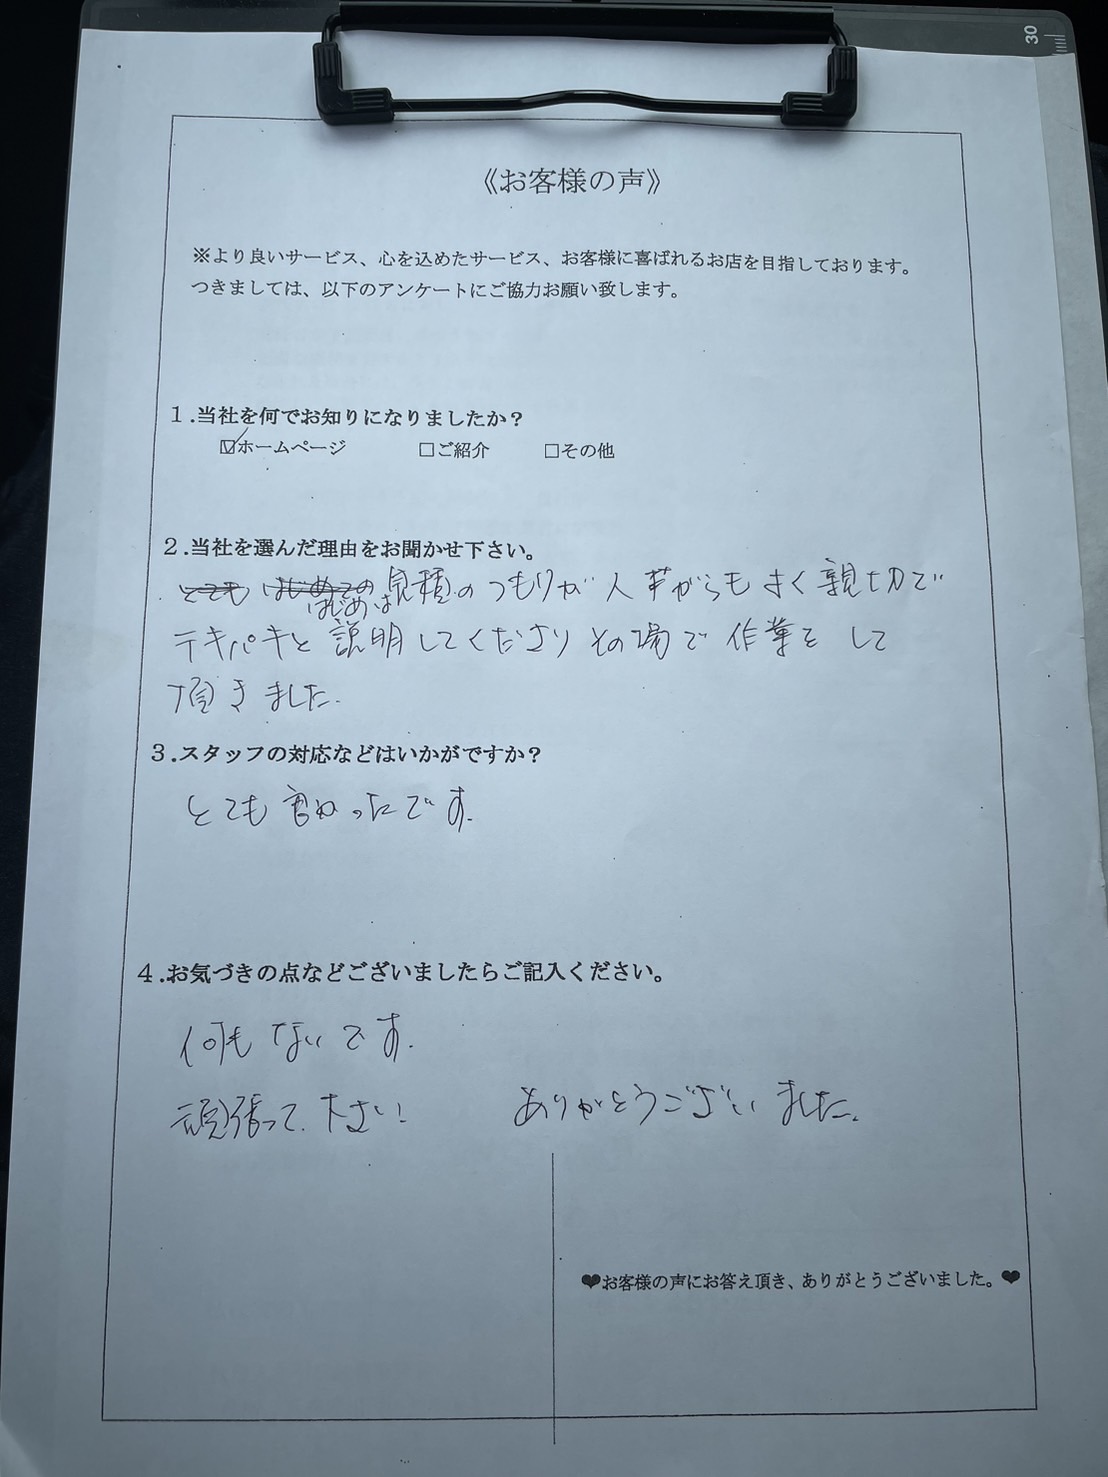 30
《お客様の声》
※より良いサービス、心を込めたサービス、お客様に喜ばれるお店を目指しております。
つきましては、以下のアンケートにご協力お願い致します。
1.当社を何でお知りになりましたか？
☑ホームページ □ご紹介 □その他
2.当社を選んだ理由をお聞かせ下さい。
とても はじめての 見積のつもりが人芽がらもよく親切で
はじめは
テキパキと説明してくださりその場で作業をして
頂きました.
3.スタッフの対応などはいかがですか？
とても良かったです.
4.お気づきの点などございましたらご記入ください。
何もないです.
頑張って下さい! ありがとうございました.
❤お客様の声にお答え頂き、ありがとうございました。❤